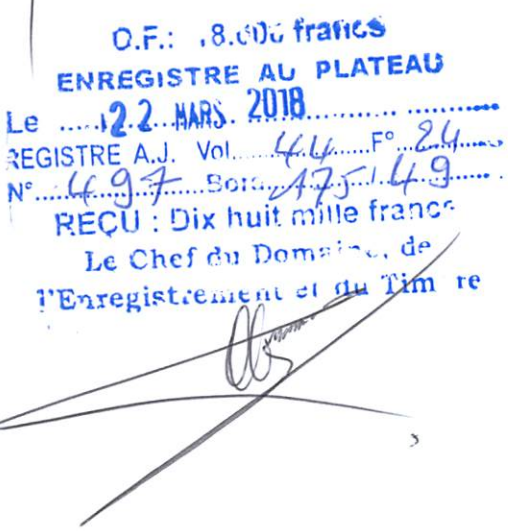 D.F.: 18.000 francs
ENREGISTRE AU PLATEAU
Le ..... 22 MARS. 2018 .....
REGISTRE A.J. Vol. 44 F° 24
N° 497 Bord. 175/ 49
REÇU : Dix huit mille francs
Le Chef du Domaine, de
l'Enregistrement et du Timbre